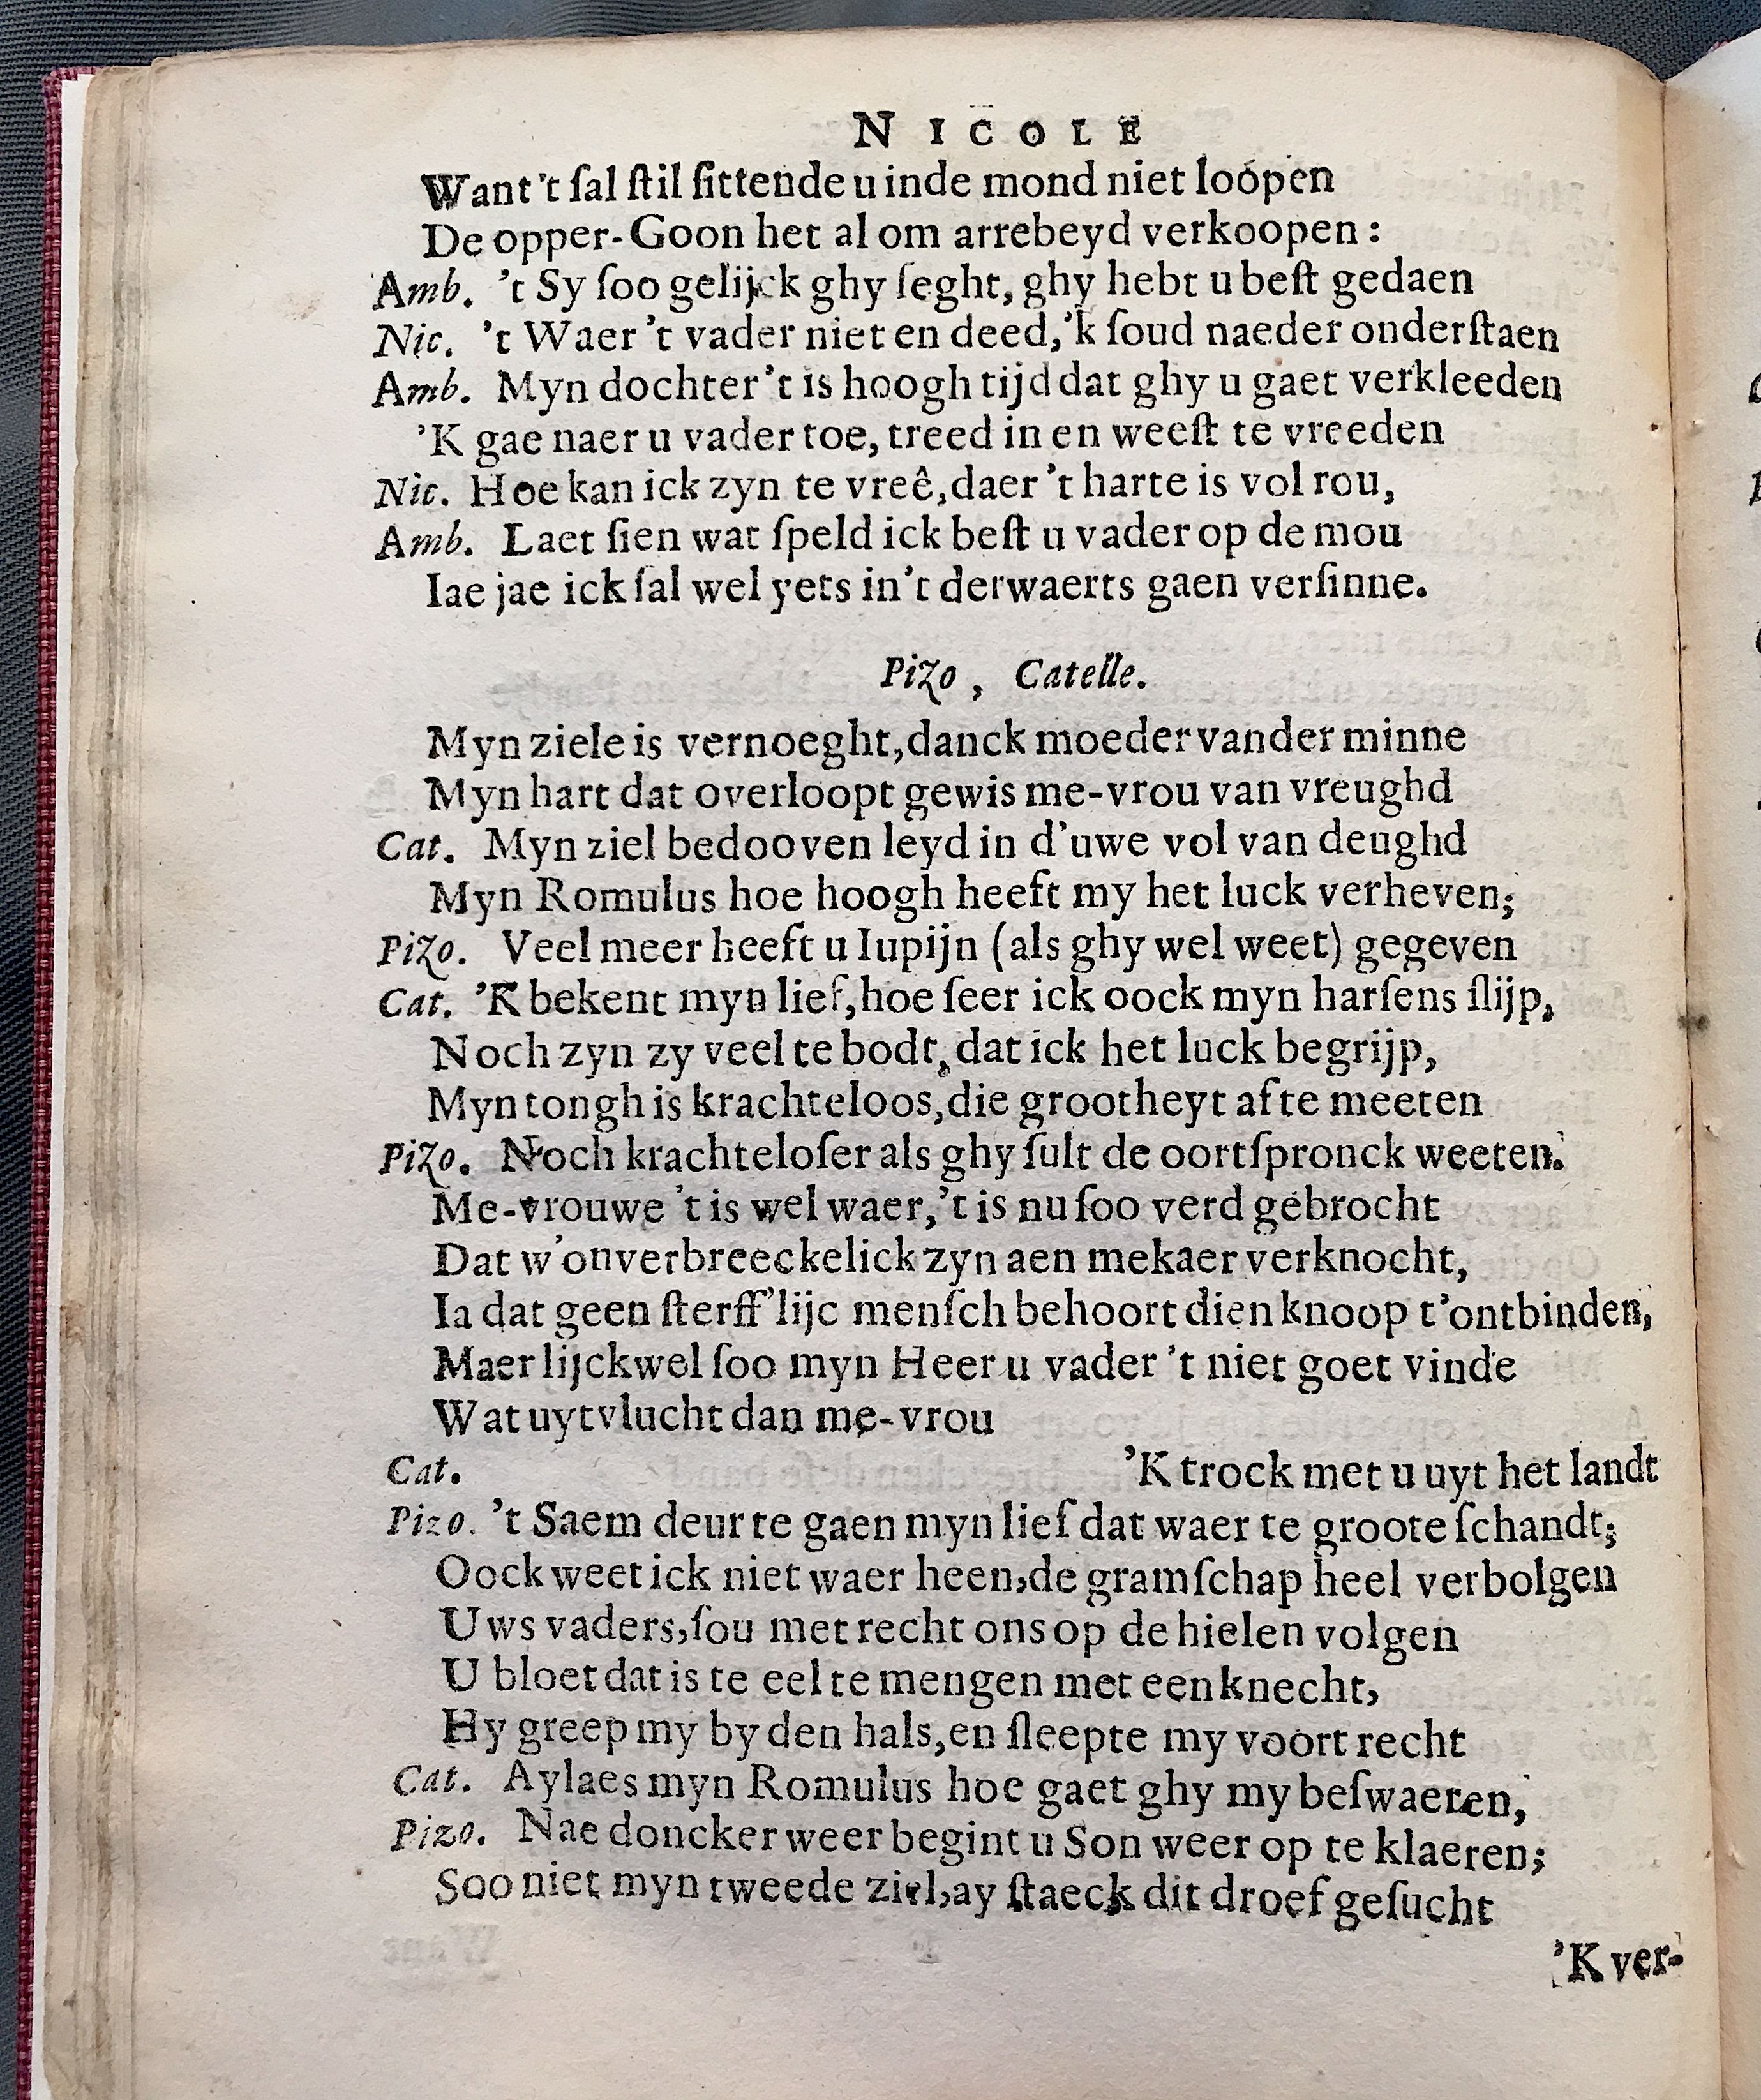 NICOLE
Want 't ſal ſtil ſittende u inde mond niet loopen
De opper-Goon het al om arrebeyd verkoopen :
Amb. 't Sy ſoo gelijck ghy ſeght, ghy hebt u beſt gedaen
Nic. 't Waer 't vader niet en deed, 'k ſoud naeder onderſtaen
Amb. Myn dochter 't is hoogh tijd dat ghy u gaet verkleeden
'K gae naer u vader toe, treed in en weeſt te vreeden
Nic. Hoe kan ick zyn te vreê, daer 't harte is vol rou,
Amb. Laet ſien wat ſpeld ick beſt u vader op de mou
Iae jae ick ſal wel yets in 't derwaerts gaen verſinne.
Pizo, Catelle.
Myn ziele is vernoeght, danck moeder vander minne
Myn hart dat overloopt gewis me-vrou van vreughd
Cat. Myn ziel bedooven leyd in d'uwe vol van deughd
Myn Romulus hoe hoogh heeft my het luck verheven;
Pizo. Veel meer heeft u Iupijn (als ghy wel weet) gegeven
Cat. 'K bekent myn lief, hoe ſeer ick oock myn harſens ſlijp,
Noch zyn zy veel te bodt, dat ick het luck begrijp,
Myn tongh is krachteloos, die grootheyt af te meeten
Pizo. Noch krachteloſer als ghy ſult de oortſpronck weeten.
Me-vrouwe 't is wel waer, 't is nu ſoo verd gebrocht
Dat w'onverbreeckelick zyn aen mekaer verknocht,
Ia dat geen ſterff'lijc menſch behoort dien knoop t'ontbinden,
Maer lijckwel ſoo myn Heer u vader 't niet goet vinde
Wat uytvlucht dan me-vrou
Cat. 'K trock met u uyt het landt
Pizo. 't Saem deur te gaen myn lief dat waer te groote ſchandt;
Oock weet ick niet waer heen, de gramſchap heel verbolgen
Uws vaders, ſou met recht ons op de hielen volgen
U bloet dat is te eel te mengen met een knecht,
Hy greep my by den hals, en ſleepte my voort recht
Cat. Aylaes myn Romulus hoe gaet ghy my beſwaeren,
Pizo. Nae doncker weer begint u Son weer op te klaeren;
Soo niet myn tweede ziel, ay ſtaeck dit droef geſucht
'K ver-